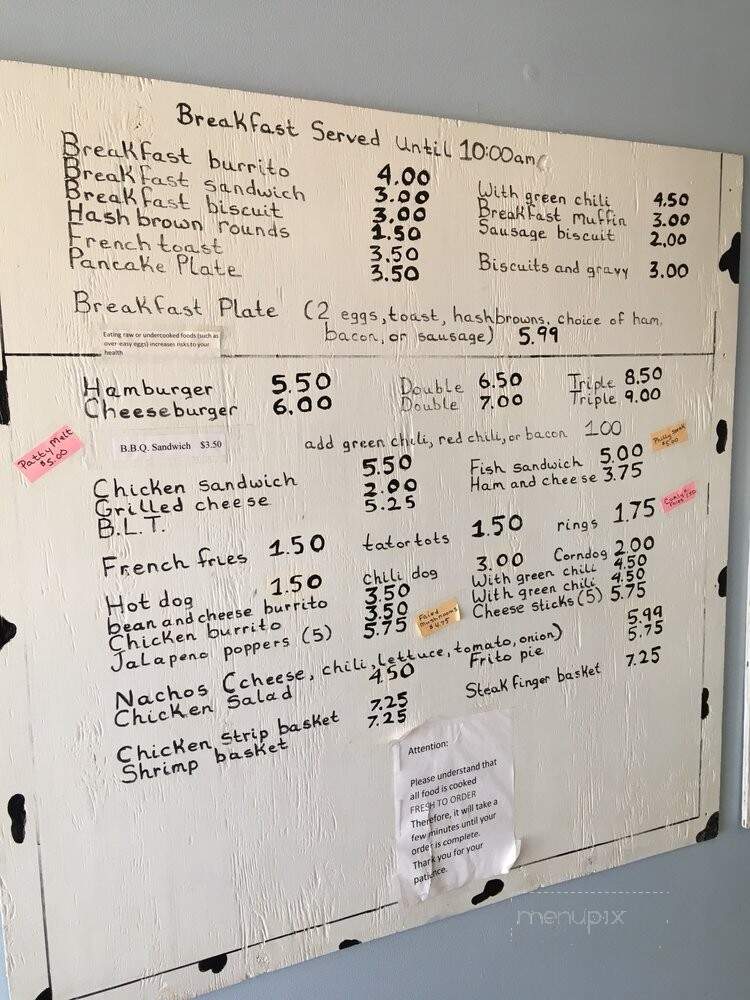 Breakfast Served Until 10:00am
Breakfast burrito 4.00 With green chili 4.50
Breakfast sandwich 3.00 Breakfast muffin 3.00
Breakfast biscuit 3.00 Sausage biscuit 2.00
Hash brown rounds 1.50
French toast 3.50 Biscuits and gravy 3.00
Pancake Plate 3.50
Breakfast Plate (2 eggs, toast, hashbrowns, choice of ham,
bacon, or sausage) 5.99
Eating raw or undercooked foods (such as
over-easy eggs) increases risks to your
health
Hamburger 5.50 Double 6.50 Triple 8.50
Cheeseburger 6.00 Double 7.00 Triple 9.00
Patty Melt
$5.00
B.B.Q. Sandwich $3.50
add green chili, red chili, or bacon 1.00
Chicken sandwich 5.50 Fish sandwich 5.00
Grilled cheese 2.00 Ham and cheese 3.75
B.L.T. 5.25
French fries 1.50 tator tots 1.50 rings 1.75
Hot dog 1.50 chili dog 3.00 Corndog 2.00
bean and cheese burrito 3.50 With green chili 4.50
Chicken burrito 3.50 With green chili 4.50
Jalapeno poppers (5) 5.75 Cheese sticks (5) 5.75
Fried
Mushrooms
$4.75
Nachos (cheese, chili, lettuce, tomato, onion) 5.99
Chicken Salad 4.50 Frito pie 5.75
Chicken strip basket 7.25 Steak finger basket 7.25
Shrimp basket 7.25
Attention:
Please understand that
all food is cooked
FRESH TO ORDER
Therefore, it will take a
few minutes until your
order is complete.
Thank you for your
patience.
menupix